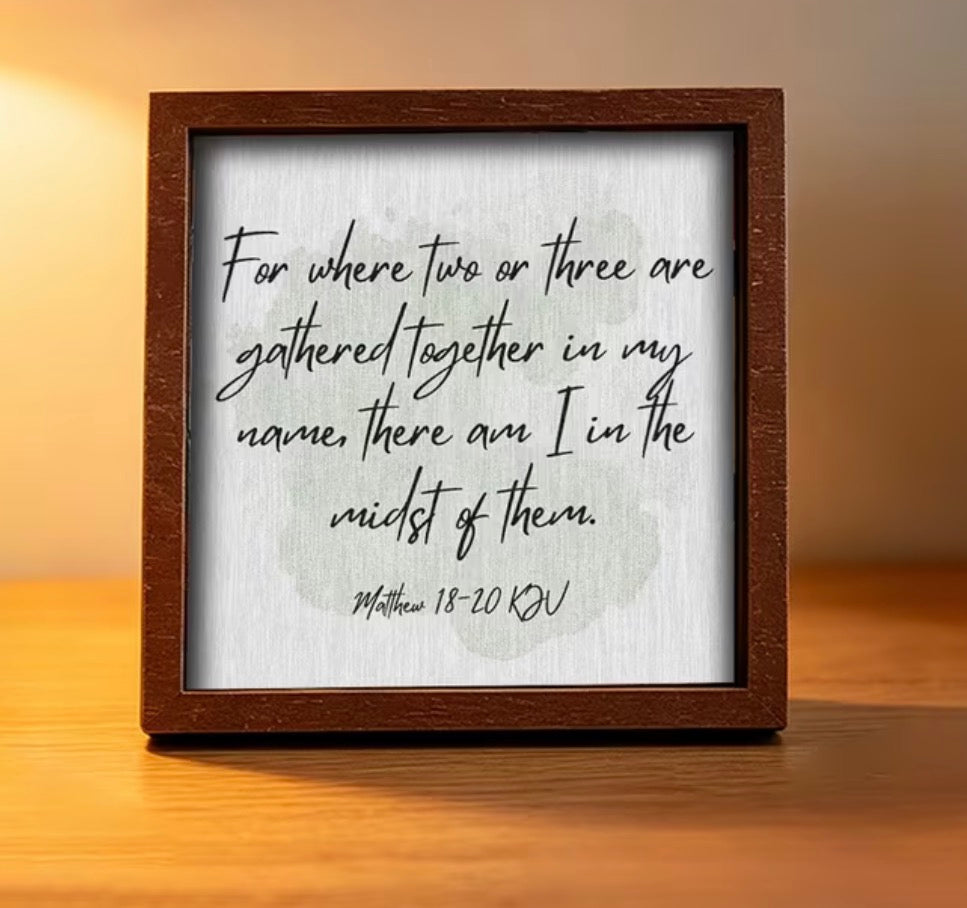 For where two or three are
gathered together in my
name, there am I in the
midst of them.
Matthew 18-20 KJV